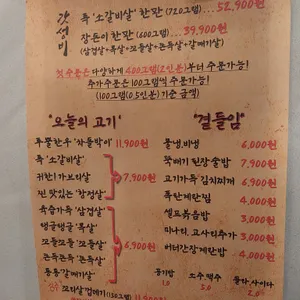 갓성비
특 '소갈비살' 한판 (720그램) ... 52,900원
장돈이 한판 (600그램) ... 39,900원
(삼겹살+목살+꼬들살+쫀득살+갈매기살)
첫주문은 다양하게 400그램(2인분)부터 주문가능!
추가주문은 100그램씩 주문가능!
(100그램(0.5인분) 기준 금액)
'오늘의 고기'
투뿔한우 '차돌박이' 11,900원
특 '소갈비살'
귀한! '가브리살' 7,900원
찐 맛있는 '항정살'
육즙가득 '삼겹살'
탱글탱글 '목살'
꼬들꼬들 '꼬들살' 6,900원
쫀득쫀득 '쫀득살'
통통 '갈매기살'
꼬리살껍데기 11,900원
'곁들임'
물냉비냉 6,000원
뚝배기 된장술밥 7,900원
고기가득 김치찌개 6,900원
폭탄계란찜 4,000원
셀프볶음밥 3,000원
미나리, 고사리추가 3,000원
버터간장계란밥 4,000원
공기밥 1.0
소주.맥주 5.0
콜라.사이다 2.0